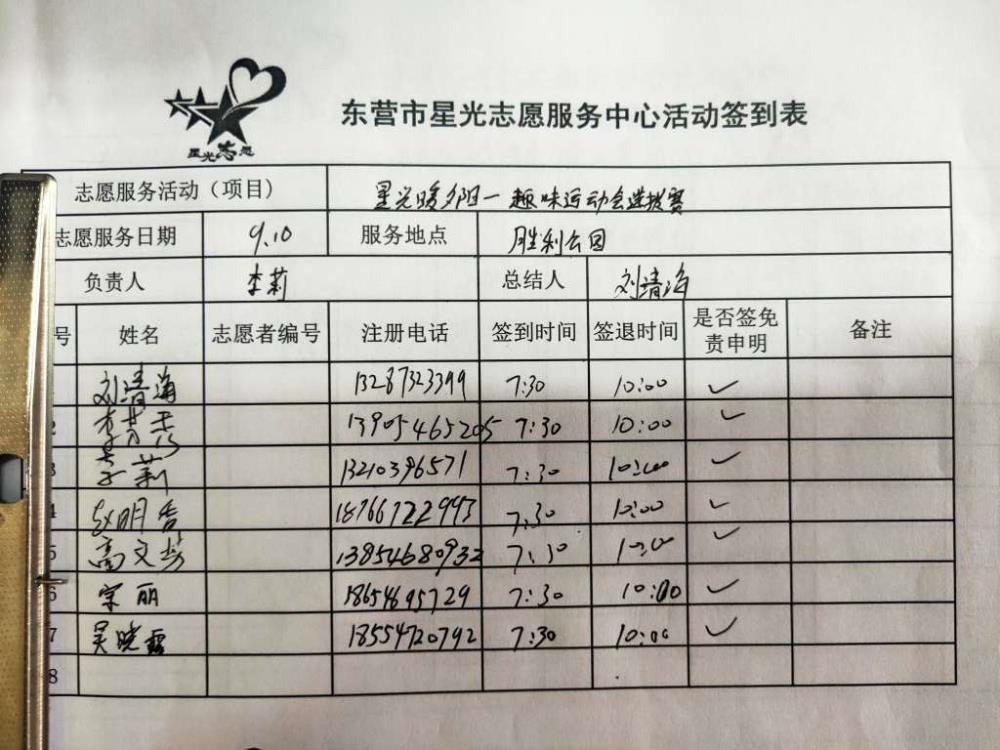 星光志愿
东营市星光志愿服务中心活动签到表
志愿服务活动（项目） 星光暖夕阳一趣味运动会选拔赛
志愿服务日期 9.10 服务地点 胜利公园
负责人 李莉 总结人 刘清海
号 姓名 志愿者编号 注册电话 签到时间 签退时间 是否签免责申明 备注
刘清海 13287323399 7:30 10:00 ✓
2 李芳 13905465205 7:30 10:00 ✓
3 李莉 13210396571 7:30 10:00 ✓
4 赵明 18766722993 7:30 10:00 ✓
5 高文 13854680932 7:30 10:00 ✓
6 宋丽 18654695729 7:30 10:00 ✓
7 吴晓霞 18554720792 7:30 10:00 ✓
8